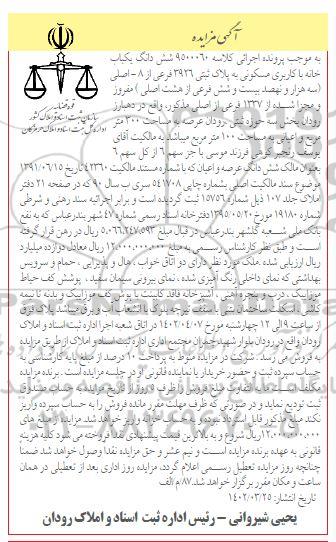 آگهی مزایده
قوه قضاییه
سازمان ثبت اسناد و املاک کشور
اداره کل ثبت اسناد و املاک هرمزگان
به موجب پرونده اجرائی کلاسه ۹۵۰۰۰۶۰ شش دانگ یکباب
خانه با کاربری مسکونی به پلاک ثبتی ۳۹۲۶ فرعی از ۸ - اصلی
(سه هزار و نهصد بیست و شش فرعی از هشت اصلی ) مفروز
و مجزا شده از ۱۳۳۷ فرعی از اصلی مذکور، واقع در دهبارز
رودان بخش سه حوزه ثبتی رودان عرصه به مساحت ۳۰۰ متر
مربع و اعیانی به مساحت ۱۰۰ متر مربع میباشد به مالکیت آقای
یوسف رنجبر کوهی فرزند موسی با جز سهم ۶ از کل سهم ۶
بعنوان مالک شش دانگ عرصه و اعیان که با شماره مستند مالکیت ۴۲۳۶۰ تاریخ ۱۳۹۱/۰۶/۱۵
موضوع سند مالکیت اصلی بشماره چاپی ۵۴۱۷۰۸ سری ب سال ۹۰ که در صفحه ۲۱ دفتر
املاک جلد ۱۰۷ ذیل شماره ۱۵۷۵۶ ثبت گردیده است و برابر اجرائیه سند رهنی و شرطی
شماره ۱۹۱۸۰ مورخ ۱۳۹۵/۰۵/۲۰ دفترخانه اسناد رسمی شماره ۴۷ شهر بندرعباس که به نفع
بانک ملی شعبه گلشهر بندرعباس در قبال مبلغ ۵,۰۶۶,۲۴۷,۵۹۳ ریال در رهن قرار گرفته
است و طبق نظر کارشناس رسمی به مبلغ ۱۲,۰۰۰,۰۰۰,۰۰۰ ریال معادل دوازده میلیارد
ریال ارزیابی شده .ملک مورد نظر دارای دو اتاق خواب ، هال و پذیرایی ، حمام و سرویس
بهداشتی که نمای داخلی رنگ آمیزی شده ، نمای بیرونی سیمان سفید ، پوشش کف حیاط
موزاییک ، درب و پنجره آهنی ، آشپزخانه فاقد کابینت با پوش کف موزاییک و بدنه تا نیمه
کاشی ، اسکلت ساختمان بتنی با سقف تیرچه بلوک با انشعاب آب و برق میباشد پلاک فوق
از ساعت ۹ الی ۱۲ چهارشنبه مورخ ۱۴۰۲/۰۴/۰۷ در اتاق شعبه اجرا اداره ثبت اسناد و املاک
رودان واقع در رودان بلوار شهید چمران مجتمع اداری اداره ثبت اسناد و املاک از طریق مزایده
به فروش می رسد. شرکت در مزایده منوط به پرداخت ۱۰ درصد از مبلغ پایه کارشناسی به
حساب سپرده ثبت و حضور خریدار یا نماینده قانونی او در جلسه مزایده است .برنده مزایده
مکلف است مابه التفاوت مبلغ فروش را ظرف ۵ روز از تاریخ مزایده به حساب صندوق
ثبت تودیع نماید و در صورتی که ظرف مهلت مقرر مانده فروش را به حساب سپرده واریز
نکند مبلغ مذکور قابل استرداد نبوده و به حساب خزانه واریز خواهد شد.مزایده از مبلغ های
۱۲,۰۰۰,۰۰۰,۰۰۰ ریال شروع و به بالاترین قیمت پیشنهادی نقدا فروخته می شود کلیه هزینه
قانونی به عهده برنده مزایده است و نیم عشر و حق مزایده نقدا وصول خواهد شد ضمنا
چنانچه روز مزایده تعطیل رسمی اعلام گردد، مزایده روز اداری بعد از تعطیلی در همان
ساعت و مکان مقرر برگزار خواهد شد.۸۷/م الف
تاریخ انتشار: ۱۴۰۲/۰۳/۲۵
یحیی شیروانی – رئیس اداره ثبت اسناد و املاک رودان